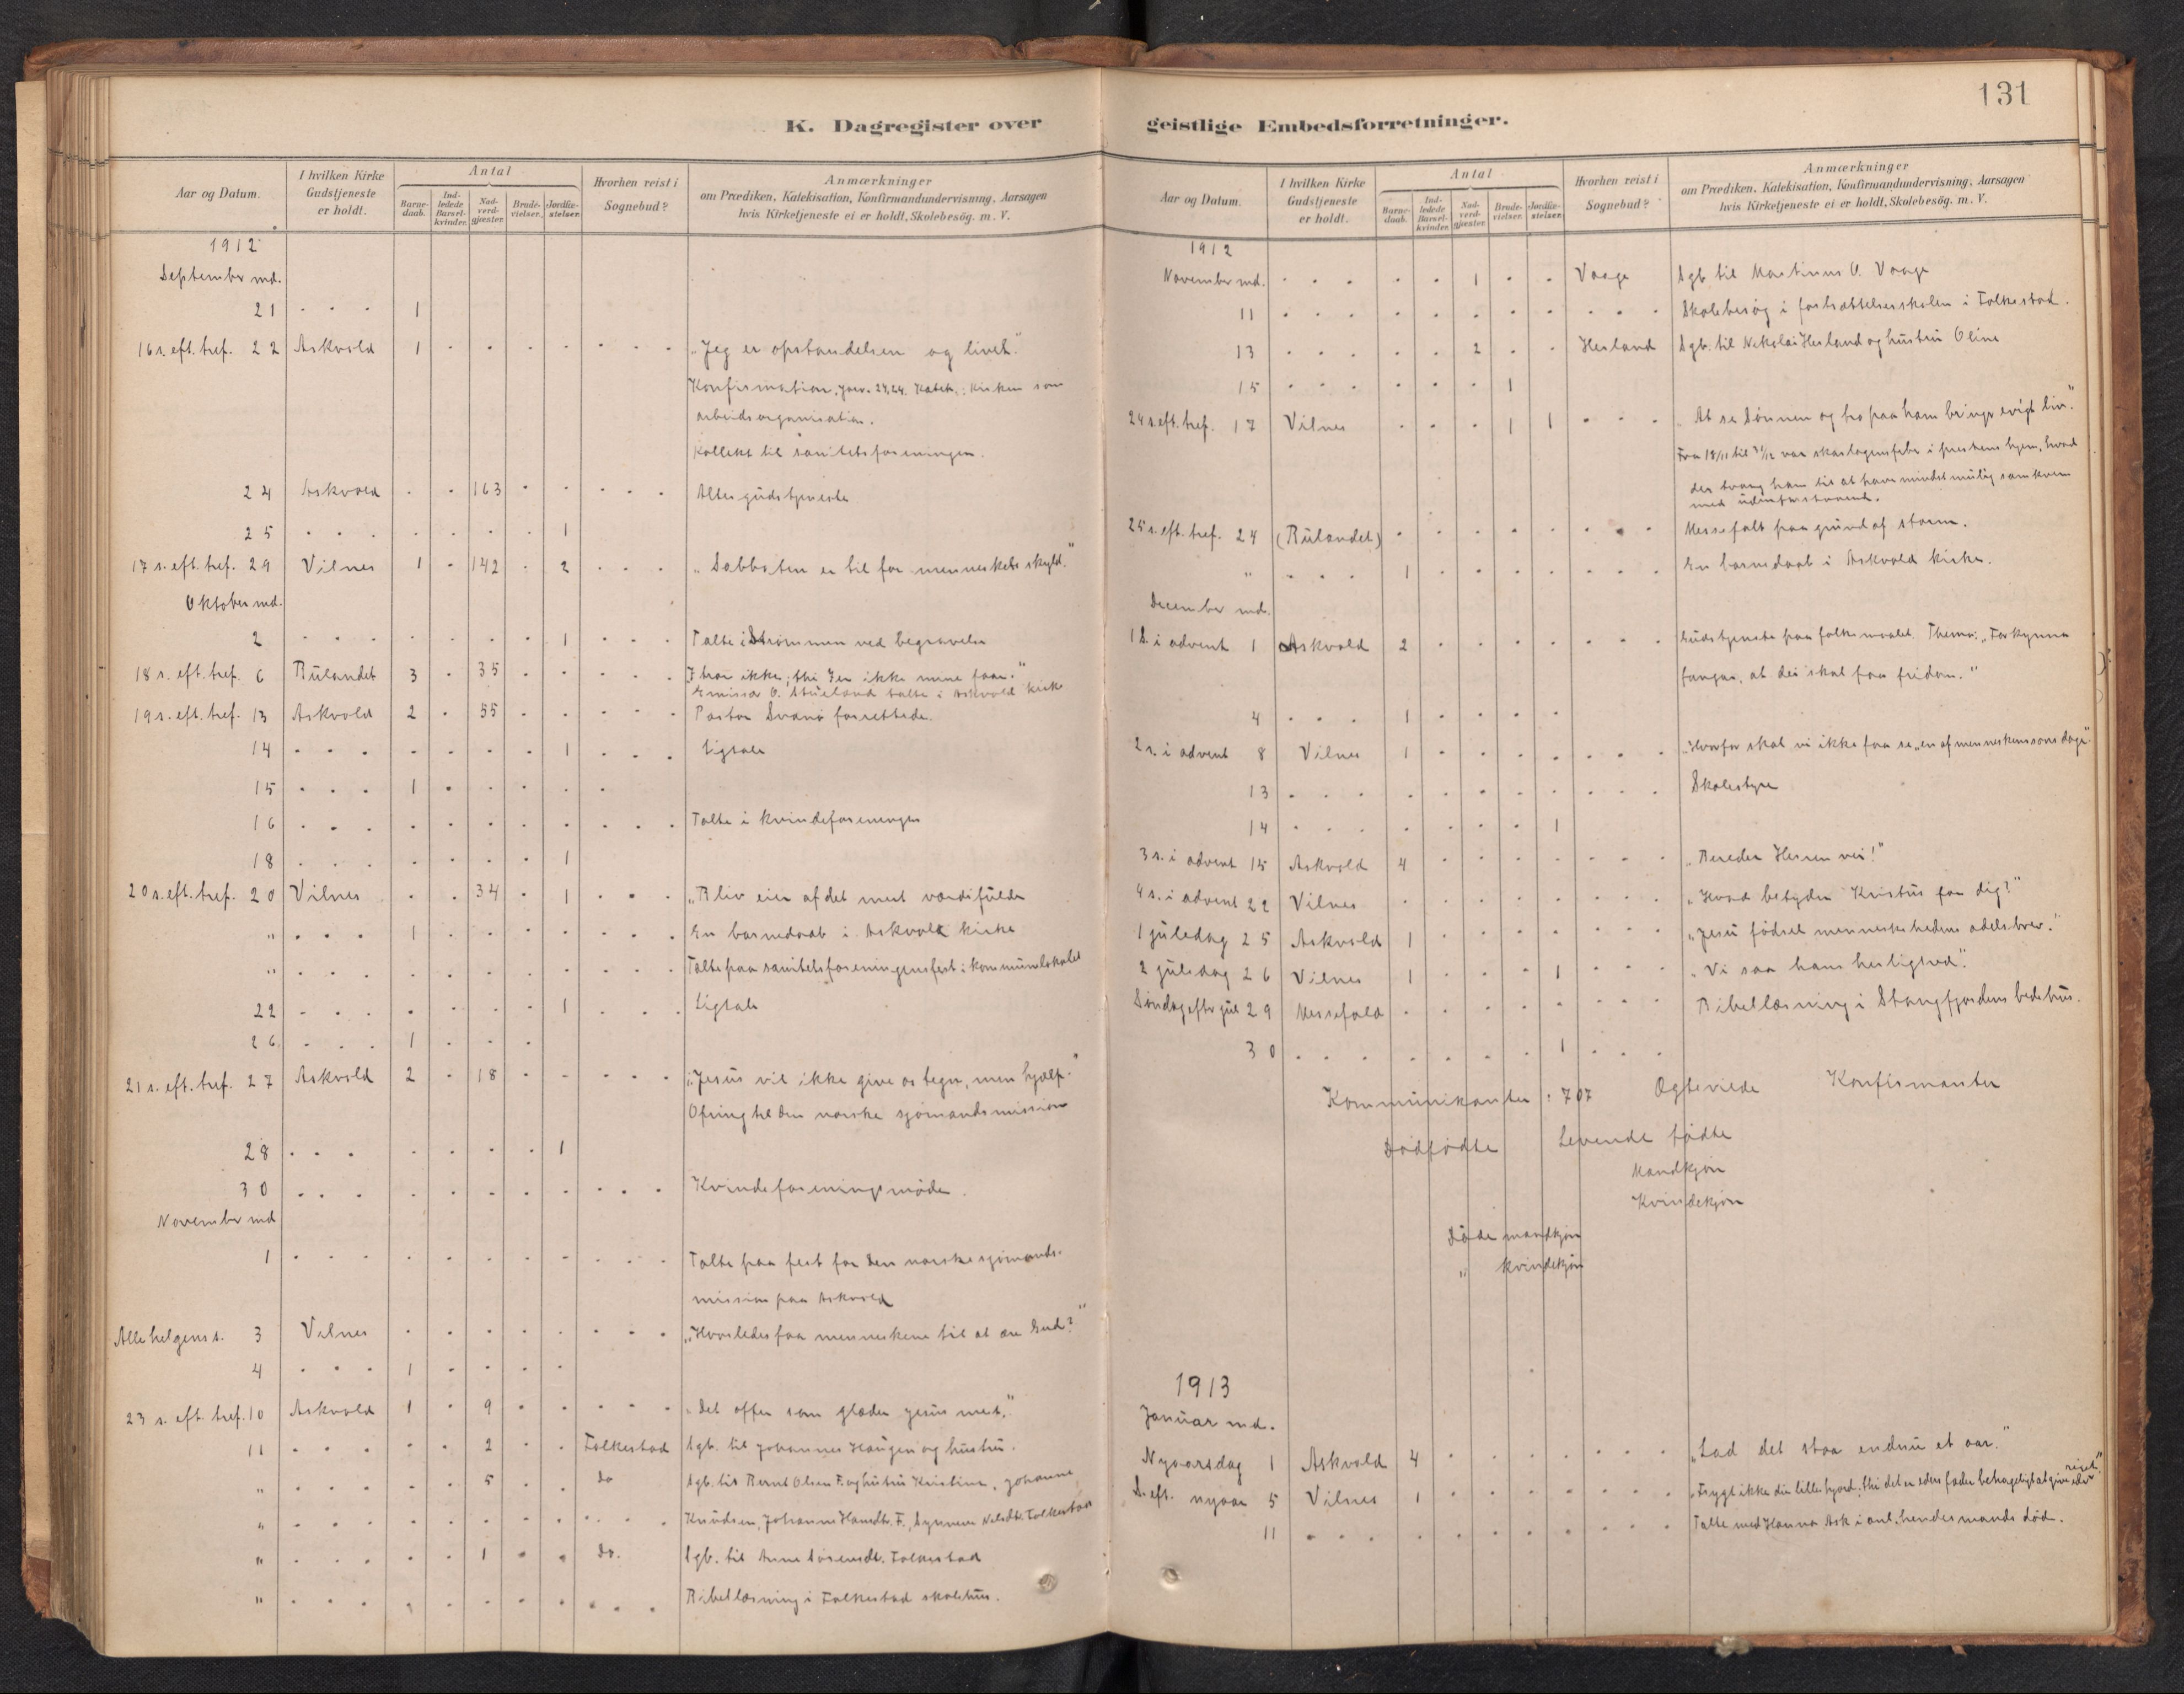 131
K. Dagregister over geistlige Embedsforretninger.
Aar og Datum. I hvilken Kirke Gudstjeneste er holdt. Antal Barnedaab. Indledede Barselkvinder. Nadverdgjester. Brudevielser. Jordfæstelser. Hvorhen reist i Sognebud? Anmærkninger om Prædiken, Katekisation, Konfirmandundervisning, Aarsagen hvis Kirketjeneste ei er holdt, Skolebesøg. m. V.
1912
September md.
21 . . . 1
16 s. eft. tref. 22 Askvold 1 „Jeg er opstandelsen og livet."
Konfirmation. Joev. 24,24. Katek.: Kirken som
arbeidsorganisation.
Kollekt til sanitetsforeningen.
24 Askvold . . 163 . . . . . Altergudstjeneste
25 . . . . . . . 1
17 s. eft. tref. 29 Vilnes 1 . 142 . 2 . . . „Sabbaten er til for menneskets skyld."
Oktober md.
2 . . . . . . . 1 . . . Talte i Strømmen ved begravelse
18 s. eft. tref. 6 Bulandet 3 . 35 . . . . . I tror ikke; thi I er ikke mine faar."
Emissær O. talte i Askvold kirke
19 s. eft. tref. 13 Askvold 2 . 55 . . . . . Pastor Svanø forrettede.
14 . . . . . . . 1 . . . Ligtale
15 . . . 1 . . . . .
16 . . . . . . . . . . . Talte i kvindeforeningen
18 . . . . . . . 1
20 s. eft. tref. 20 Vilnes . . 34 . 1 . . . „Bliv eier af det mest værdifulde
" . . . 1 . . . . . . . En barnedaab i Askvold kirke
" . . . . . . . . . . . Talte paa sanitetsforeningens fest i kommunelokalet
22 . . . . . . . 1 . . . Ligtale
26 . . . 1 . . .
21 s. eft. tref. 27 Askvold 2 . 18 . . . . . „Jesus vil ikke give os tegn, men hjælp."
Ofring til den norske sjømandsmission
28 . . . . . . . 1
30 . . . . . . . . . . . Kvindeforeningsmøde.
November md
1 . . . . . . . . . . . Talte paa fest for den norske sjømands-
mission paa Askvold
Allehelgens s. 3 Vilnes . . . . . . . . „Hvorledes faa menneskene til at ære Gud?"
4 . . . 1 . . . .
23 s. eft. tref. 10 Askvold 1 . 9 . . . . . „Det offer som glæder Jesus mest."
11 . . . . . 2 . . Folkestad Sgb. til Johannes Haugen og hustru.
" . . . . . 5 . . do Sgb. til Bernt Olsen F. og hustru Kristine, Johanne
" . . . . . . . . . . . Knudsen, Johanne Hansdtr. F., Synneve Nilsdtr. Folkestad
" . . . . . 1 . . do. Sgb. til Anne Sørensdt. Folkestad
" . . . . . . . . . . . Bibellæsning i Folkestad skolehus.
Aar og Datum. I hvilken Kirke Gudstjeneste er holdt. Antal Barnedaab. Indledede Barselkvinder. Nadverdgjester. Brudevielser. Jordfæstelser. Hvorhen reist i Sognebud? Anmærkninger om Prædiken, Katekisation, Konfirmandundervisning, Aarsagen hvis Kirketjeneste ei er holdt, Skolebesøg. m. V.
1912
November md. . . . . . 1 . . Vaage Sgb. til Martinus O. Vaage
11 . . . . . . . . . . . Skolebesøg i fortsættelsesskolen i Folkestad.
13 . . . . . 2 . . Herland Sgb. til Nikolai Herland og hustru Oline
15 . . . . . . 1
24 s. eft. tref. 17 Vilnes . . . 1 1 . . . „At se Sønnen og tro paa ham bringer evigt liv."
Fra 18/11 til 31/12 var skarlagensfeber i prestens hjem, hvad
der tvang ham til at have mindst mulig samkvem
med udenforstaaende.
25 s. eft. tref. 24 (Bulandet) . . . . . . . . Messefalt paa grund af storm.
" . . . 1 . . . . . . . En barnedaab i Askvold kirke.
December md.
1 S. i advent 1 Askvold 2 . . . . . . . Gudstjeneste paa folkemaalet. Thema: „Forkynna
fangar, at dei skal faa fridom."
4 . . . 1 . . . .
2 s. i advent 8 Vilnes 1 . . . . . . . „Hvorfor skal vi ikke faa se „en af menneskens søns dage".
13 . . . . . . . . . . . Skolestyre
14 . . . . . . . 1
3 s. i advent 15 Askvold 4 . . . . . . . „Bereder Herren vei!"
4 s. i advent 22 Vilnes . . . . . . . . „Hvad betyder Kristus for dig?"
1 juledag 25 Askvold 1 . . . . . . . „Jesu fødsel menneskehedens adelsbrev."
2 juledag 26 Vilnes 1 . . . 1 . . . „Vi saa hans herlighed."
Søndag efter jul 29 Messefald . . . . . . . . Bibellæsning i Stangfjordens bedehus.
30 . . . . . . . 1 . . .
Kommunikanter : 707 Ægteviede Konfirmanter
Dødfødte Levende fødte
Mandkjøn
Kvindekjøn
Døde mandkjøn
" kvindekjøn
1913
Januar md.
Nyaarsdag 1 Askvold 4 . . . . . . . „Lad det staa endnu et aar."
S. eft. nyaar 5 Vilnes 1 . . . . . . . „Frygt ikke du lille hjord; thi det er eders fader behageligt at give eder riget."
11 . . . . . . . . . . . Talte med Hanna Ask i anl. hendes mands død.